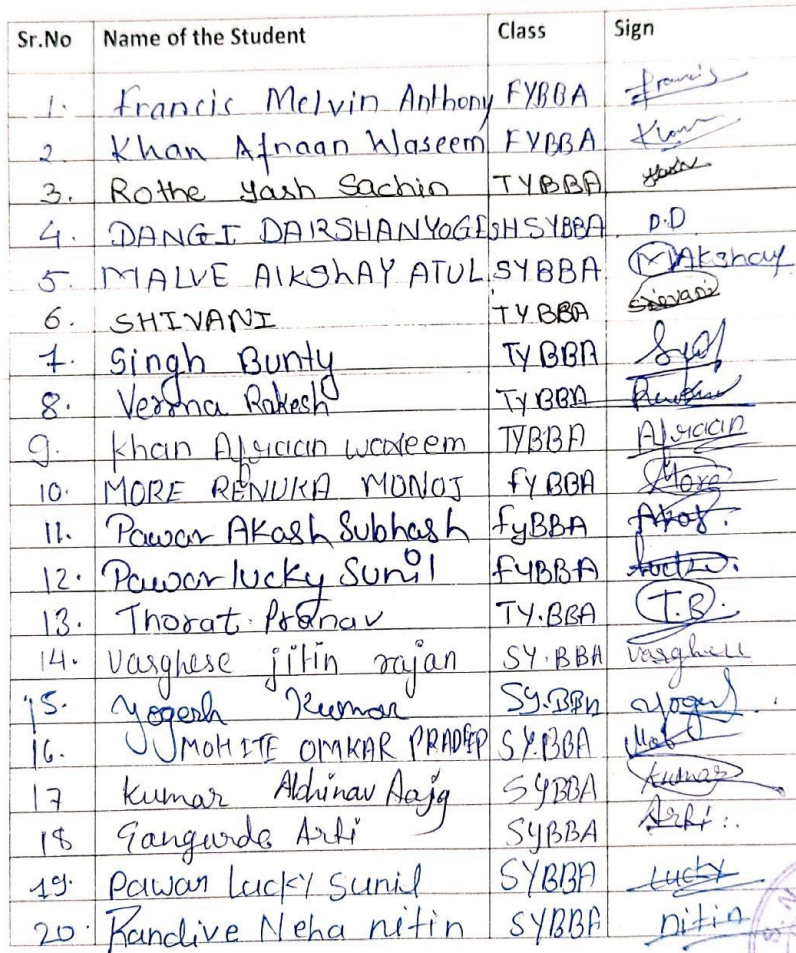 Sr.No Name of the Student Class Sign
1. Francis Melvin Anthony FYBBA Francis
2. Khan Afnaan Waseem FYBBA Khan
3. Rothe Yash Sachin TYBBA Yash
4. DANGI DARSHANYOGESH SYBBA D.D
5. MALVE AKSHAY ATUL SYBBA MAkshay
6. SHIVANI TYBBA Shivani
7. Singh Bunty TYBBA
8. Verma Rakesh TYBBA
9. Khan Afraan waseem TYBBA Afraan
10. MORE RENUKA MONOJ fYBBA More
11. Pawar Akash Subhash fyBBA
12. Pawar lucky Sunil FYBBA
13. Thorat Pranav TY.BBA T.B.
14. Varghese jitin rajan SY.BBA Varghese
15. Yogesh Kumar SY.BBA Yogesh
16. MOHITE OMKAR PRADEEP SY.BBA
17 Kumar Abhinav SYBBA Kumar
18 Gangurde Arti SYBBA Arti
19. Pawar Lucky Sunil SYBBA Lucky
20. Randive Neha nitin SYBBA nitin